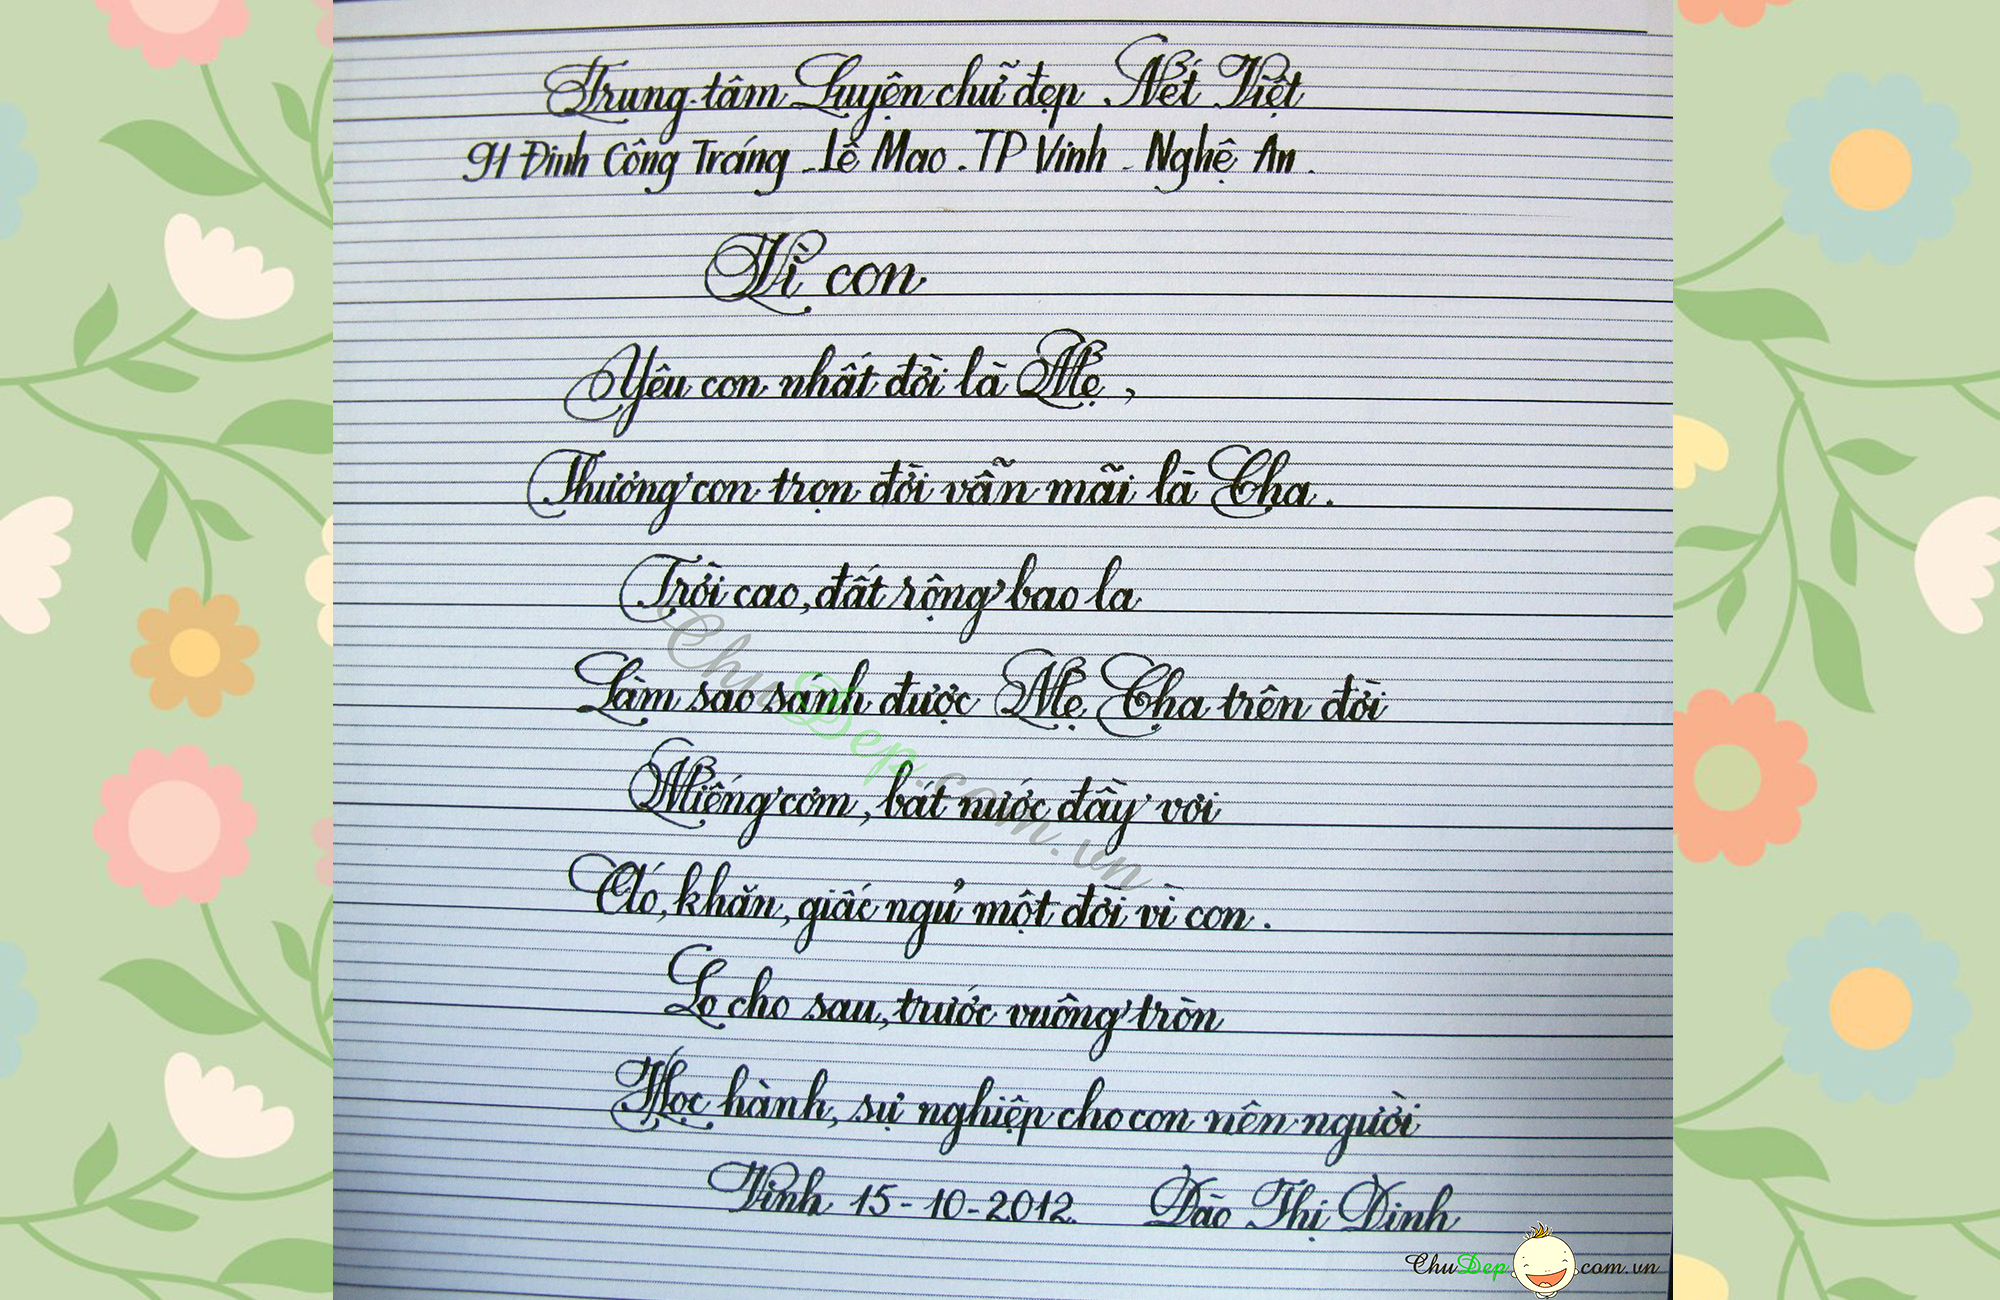 Trung tâm Luyện chữ đẹp Nét Việt
91 Đinh Công Tráng - Lê Mao - TP Vinh - Nghệ An.
Vì con
Yêu con nhất đời là Mẹ,
Thương con trọn đời vẫn mãi là Cha.
Trời cao, đất rộng bao la
Làm sao sánh được Mẹ Cha trên đời
Miếng cơm, bát nước đầy vơi
Áo, khăn, giấc ngủ một đời vì con.
Lo cho sau, trước vuông tròn
Học hành, sự nghiệp cho con nên người
Vinh 15-10-2012 Đào Thị Dinh
ChuDep.com.vn
ChuDep.com.vn